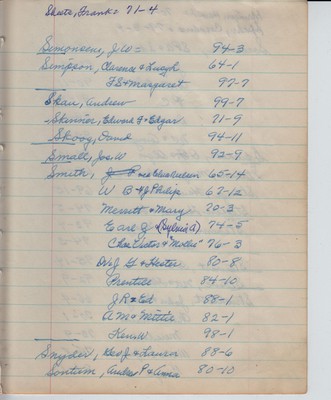 Skeets, Frank = 71-4
Simonsens, J.W = 94-3
Simpson, Clarence & Hugh 64-1
F.S & Margaret 97-7
Skau, Andrew 99-7
Skinner, Edward F & Edgar 71-9
Skoog, David 94-11
Small, Joe. W 92-9
Smith, nee Elsa Nielsen 65-14
W B & J Philip 67-12
Merritt & Mary 70-3
Earl J & (Sylvia A) 74-5
Chas Victor & "Mollie" 76-3
Dr J G & Hester 80-8
Prentice 84-10
J R & Ed 88-1
A M & Mettie 82-1
Ken. W 98-1
Snyder, Geo J & Laura 88-6
Sontum, Andrew P & Anna 80-10